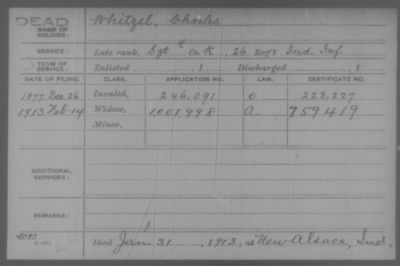 DEAD
NAME OF SOLDIER: Whitzel, Charles
SERVICE: Late rank, Sgt Co. K, 26 Reg't Ind. Inf.
TERM OF SERVICE: Enlisted , 1 Discharged , 1
DATE OF FILING. CLASS. APPLICATION NO. LAW. CERTIFICATE NO.
1877, Dec 26 Invalid, 246,091 O 223,227
1913 Feb-14 Widow, 1,001,998 a 759419
Minor,
ADDITIONAL SERVICES:
REMARKS:
Died Jan 31 , 1913, at New Alsace, Ind.